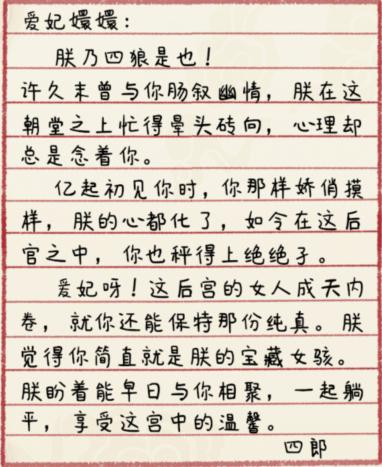 爱妃嬛嬛：
朕乃四狼是也！
许久末曾与你肠叙幽情，朕在这
朝堂之上忙得晕头砖向，心理却
总是念着你。
亿起初见你时，你那样娇俏摸
样，朕的心都化了，如令在这后
官之中，你也秤得上绝绝子。
爱妃呀！这后宫的女人成天内
卷，就你还能保特那份纯真。朕
觉得你简直就是朕的宝藏女骇。
朕盼着能早日与你相聚，一起躺
平，享受这宫中的温馨。
四郎